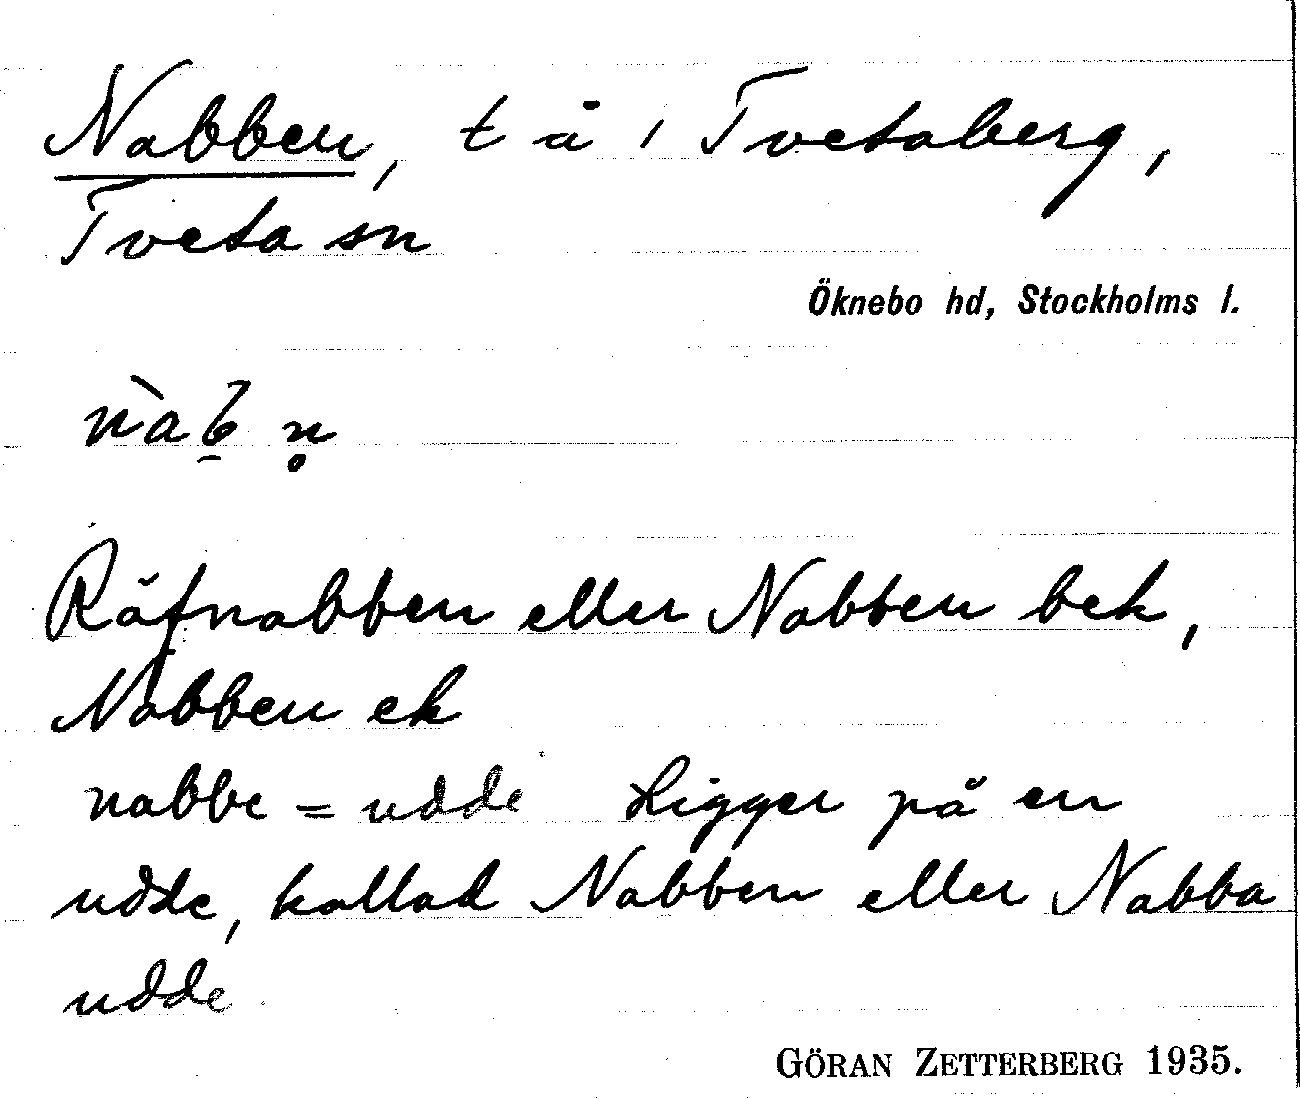 Nabben, t å i Tvetaberg,
Tveta sn
Öknebo hd, Stockholms l.
nàb̠ n̥
Räfnabben eller Nabben bek,
Nabben ek
nabbe = udde Ligger på en
udde, kallad Nabben eller Nabba
udde
GÖRAN ZETTERBERG 1935.